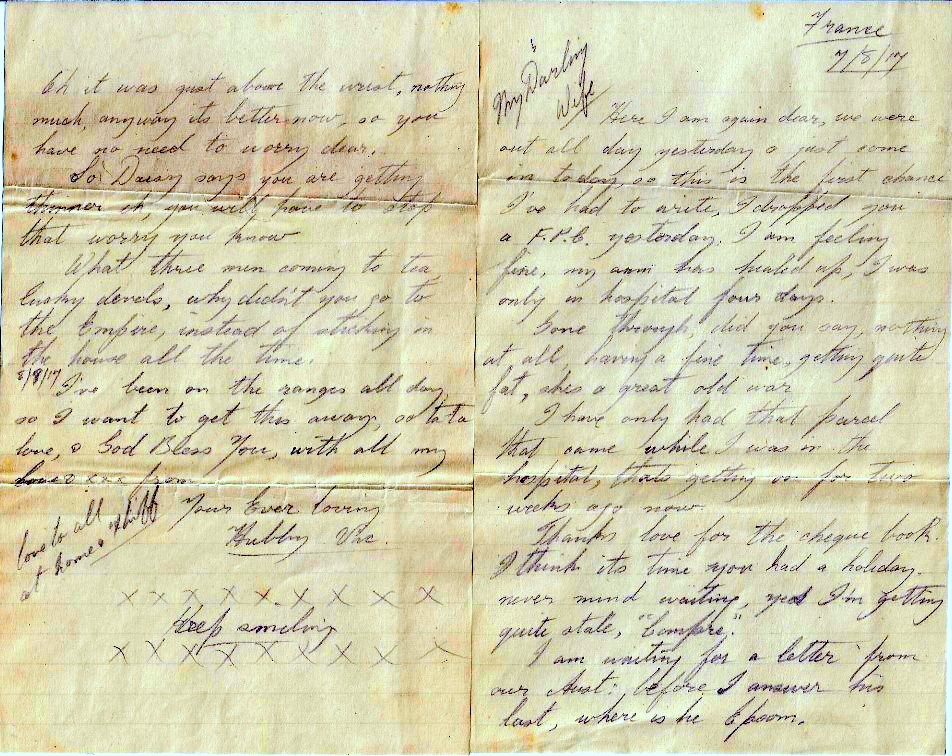 France
7/8/17
My Darling
Wife
Here I am again dear, we were
out all day yesterday & just come
in today, so this is the first chance
I've had to write, I dropped you
a F.P.C. yesterday. I am feeling
fine, my arm has healed up, I was
only in hospital four days.
Gone through, did you say, nothing
at all, having a fine time, getting quite
fat, shes a great old war
I have only had that parcel
that came while I was in the
hospital, thats getting on for two
weeks ago now.
Thanks love for the cheque book.
I think its time you had a holiday
never mind waiting, yes I'm getting
quite stale, "Compree."
I am waiting for a letter from
our Aust: before I answer his
last, where is he Epsom.
Oh it was just above the wrist, nothing
much, anyway its better now, so you
have no need to worry dear.
So Daisy says you are getting
thinner eh, you will have to stop
that worry you know
What three men coming to tea,
lucky devels, why didn't you go to
the Empire, instead of sticking in
the house all the time.
8/8/17
I've been on the ranges all day
so I want to get this away, so ta ta
love, & God Bless You, with all my
love & xxx from
Your Ever loving
Hubby Vic.
love to all
at home &
x x x x x x x x x
Keep smiling
x x x x x x x x x